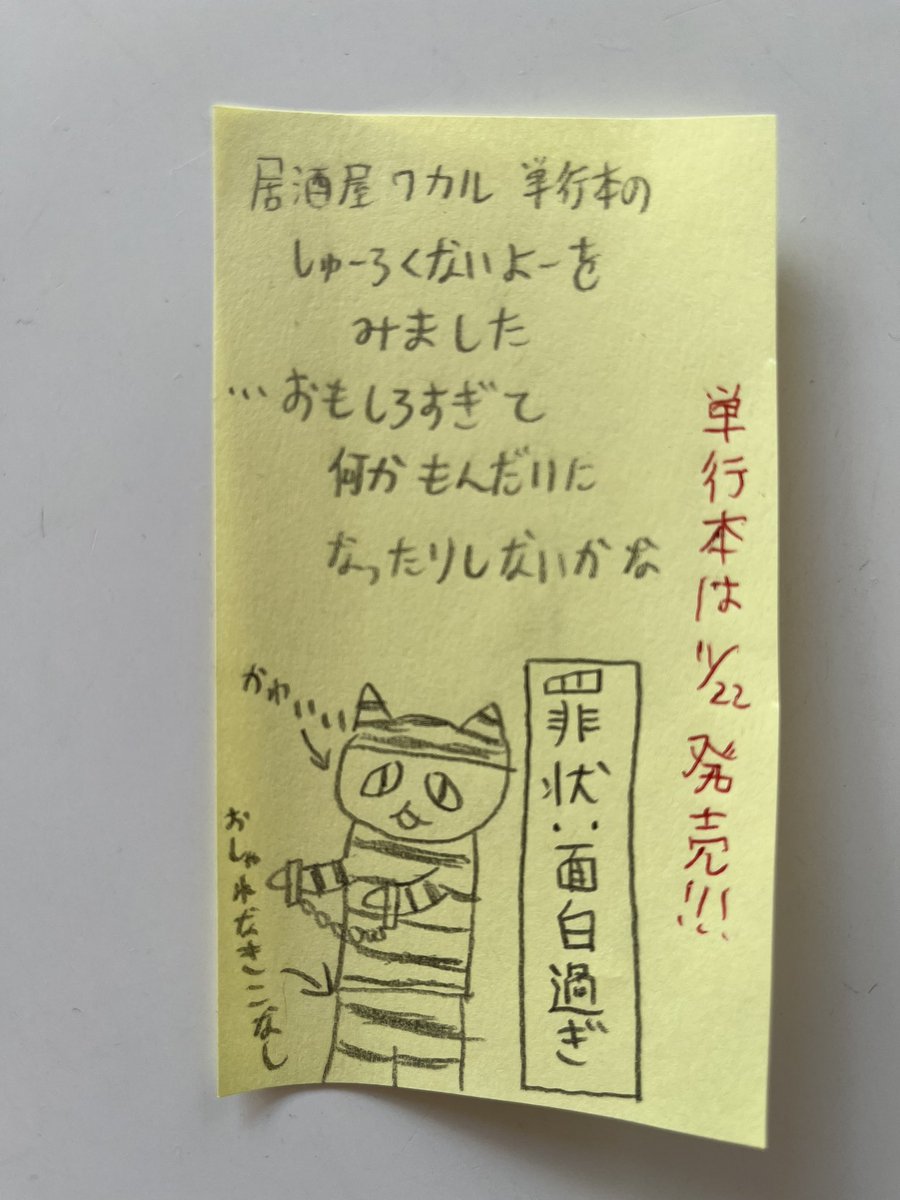 居酒屋ワカル 単行本の
しゅーろくないよーを
みました
…おもしろすぎて
何かもんだいに
なったりしないかな
単行本は11/22発売!!!
かわいい
罪状:面白過ぎ
おしゃれなきこなし